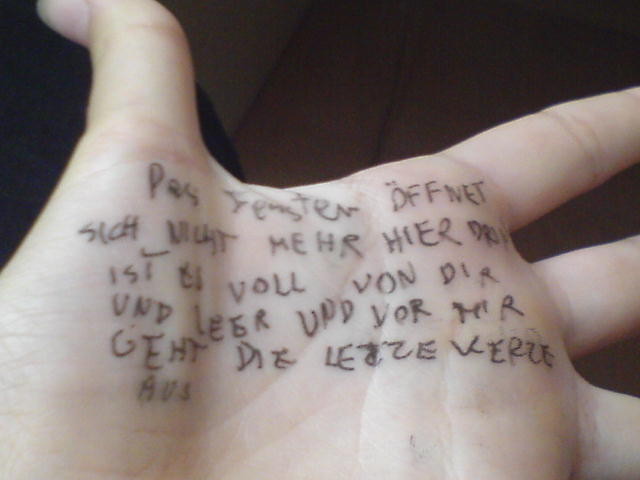 Das Fenster ÖFFNET
SICH NICHT MEHR HIER DRIN
IST ES VOLL VON DIR
UND LEER UND VOR MIR
GEHT DIE LETZTE KERZE
AUS